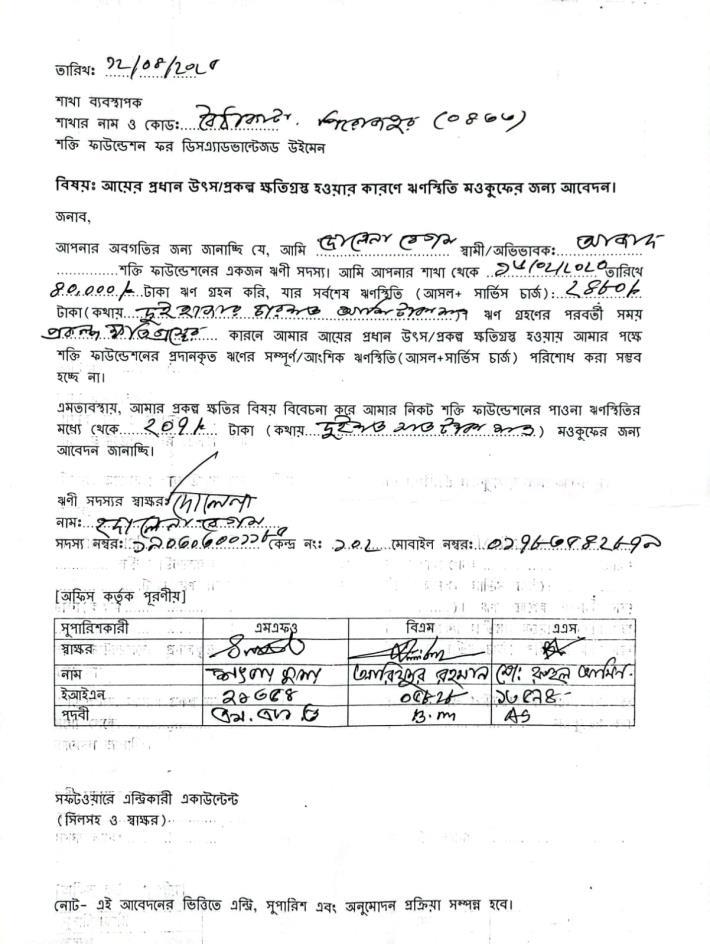 তারিখঃ ১২/০৪/২০২৫
শাখা ব্যবস্থাপক
শাখার নাম ও কোড: বৈঠাকাটা, পিরোজপুর (০৪৬৬)
শক্তি ফাউন্ডেশন ফর ডিসএ্যাডভান্টেজড উইমেন
বিষয়ঃ আয়ের প্রধান উৎস/প্রকল্প ক্ষতিগ্রস্থ হওয়ার কারণে ঋণস্থিতি মওকুফের জন্য আবেদন।
জনাব,
আপনার অবগতির জন্য জানাচ্ছি যে, আমি বেগম স্বামী/অভিভাবক:
শক্তি ফাউন্ডেশনের একজন ঋণী সদস্য। আমি আপনার শাখা থেকে তারিখে
৪০,০০০/- টাকা ঋণ গ্রহন করি, যার সর্বশেষ ঋণস্থিতি (আসল+ সার্ভিস চার্জ):
টাকা (কথায় দুই হাজার চারশত টাকা মাত্র ঋণ গ্রহণের পরবর্তী সময়
প্রকল্প ক্ষতিগ্রস্থের কারনে আমার আয়ের প্রধান উৎস/প্রকল্প ক্ষতিগ্রস্থ হওয়ায় আমার পক্ষে
শক্তি ফাউন্ডেশনের প্রদানকৃত ঋণের সম্পূর্ণ/আংশিক ঋণস্থিতি(আসল+সার্ভিস চার্জ) পরিশোধ করা সম্ভব
হচ্ছে না।
এমতাবস্থায়, আমার প্রকল্প ক্ষতির বিষয় বিবেচনা করে আমার নিকট শক্তি ফাউন্ডেশনের পাওনা ঋণস্থিতির
মধ্যে থেকে ২০৭/- টাকা (কথায় দুইশত সাত টাকা মাত্র) মওকুফের জন্য
আবেদন জানাচ্ছি।
ঋণী সদস্যর স্বাক্ষরঃ
নামঃ বেগম
সদস্য নম্বরঃ কেন্দ্র নং: ১০২ মোবাইল নম্বর:
[অফিস কর্তৃক পূরণীয়]
সুপারিশকারী এমএফও বিএম এএস
স্বাক্ষর
নাম আরিফুর রহমান মো: রুহুল আমিন
ইআইএন
পদবী এম.এফ ও B.m AS
সফটওয়ারে এন্ট্রিকারী একাউন্টেন্ট
(সিলসহ ও স্বাক্ষর)
নোট- এই আবেদনের ভিত্তিতে এন্ট্রি, সুপারিশ এবং অনুমোদন প্রক্রিয়া সম্পন্ন হবে।